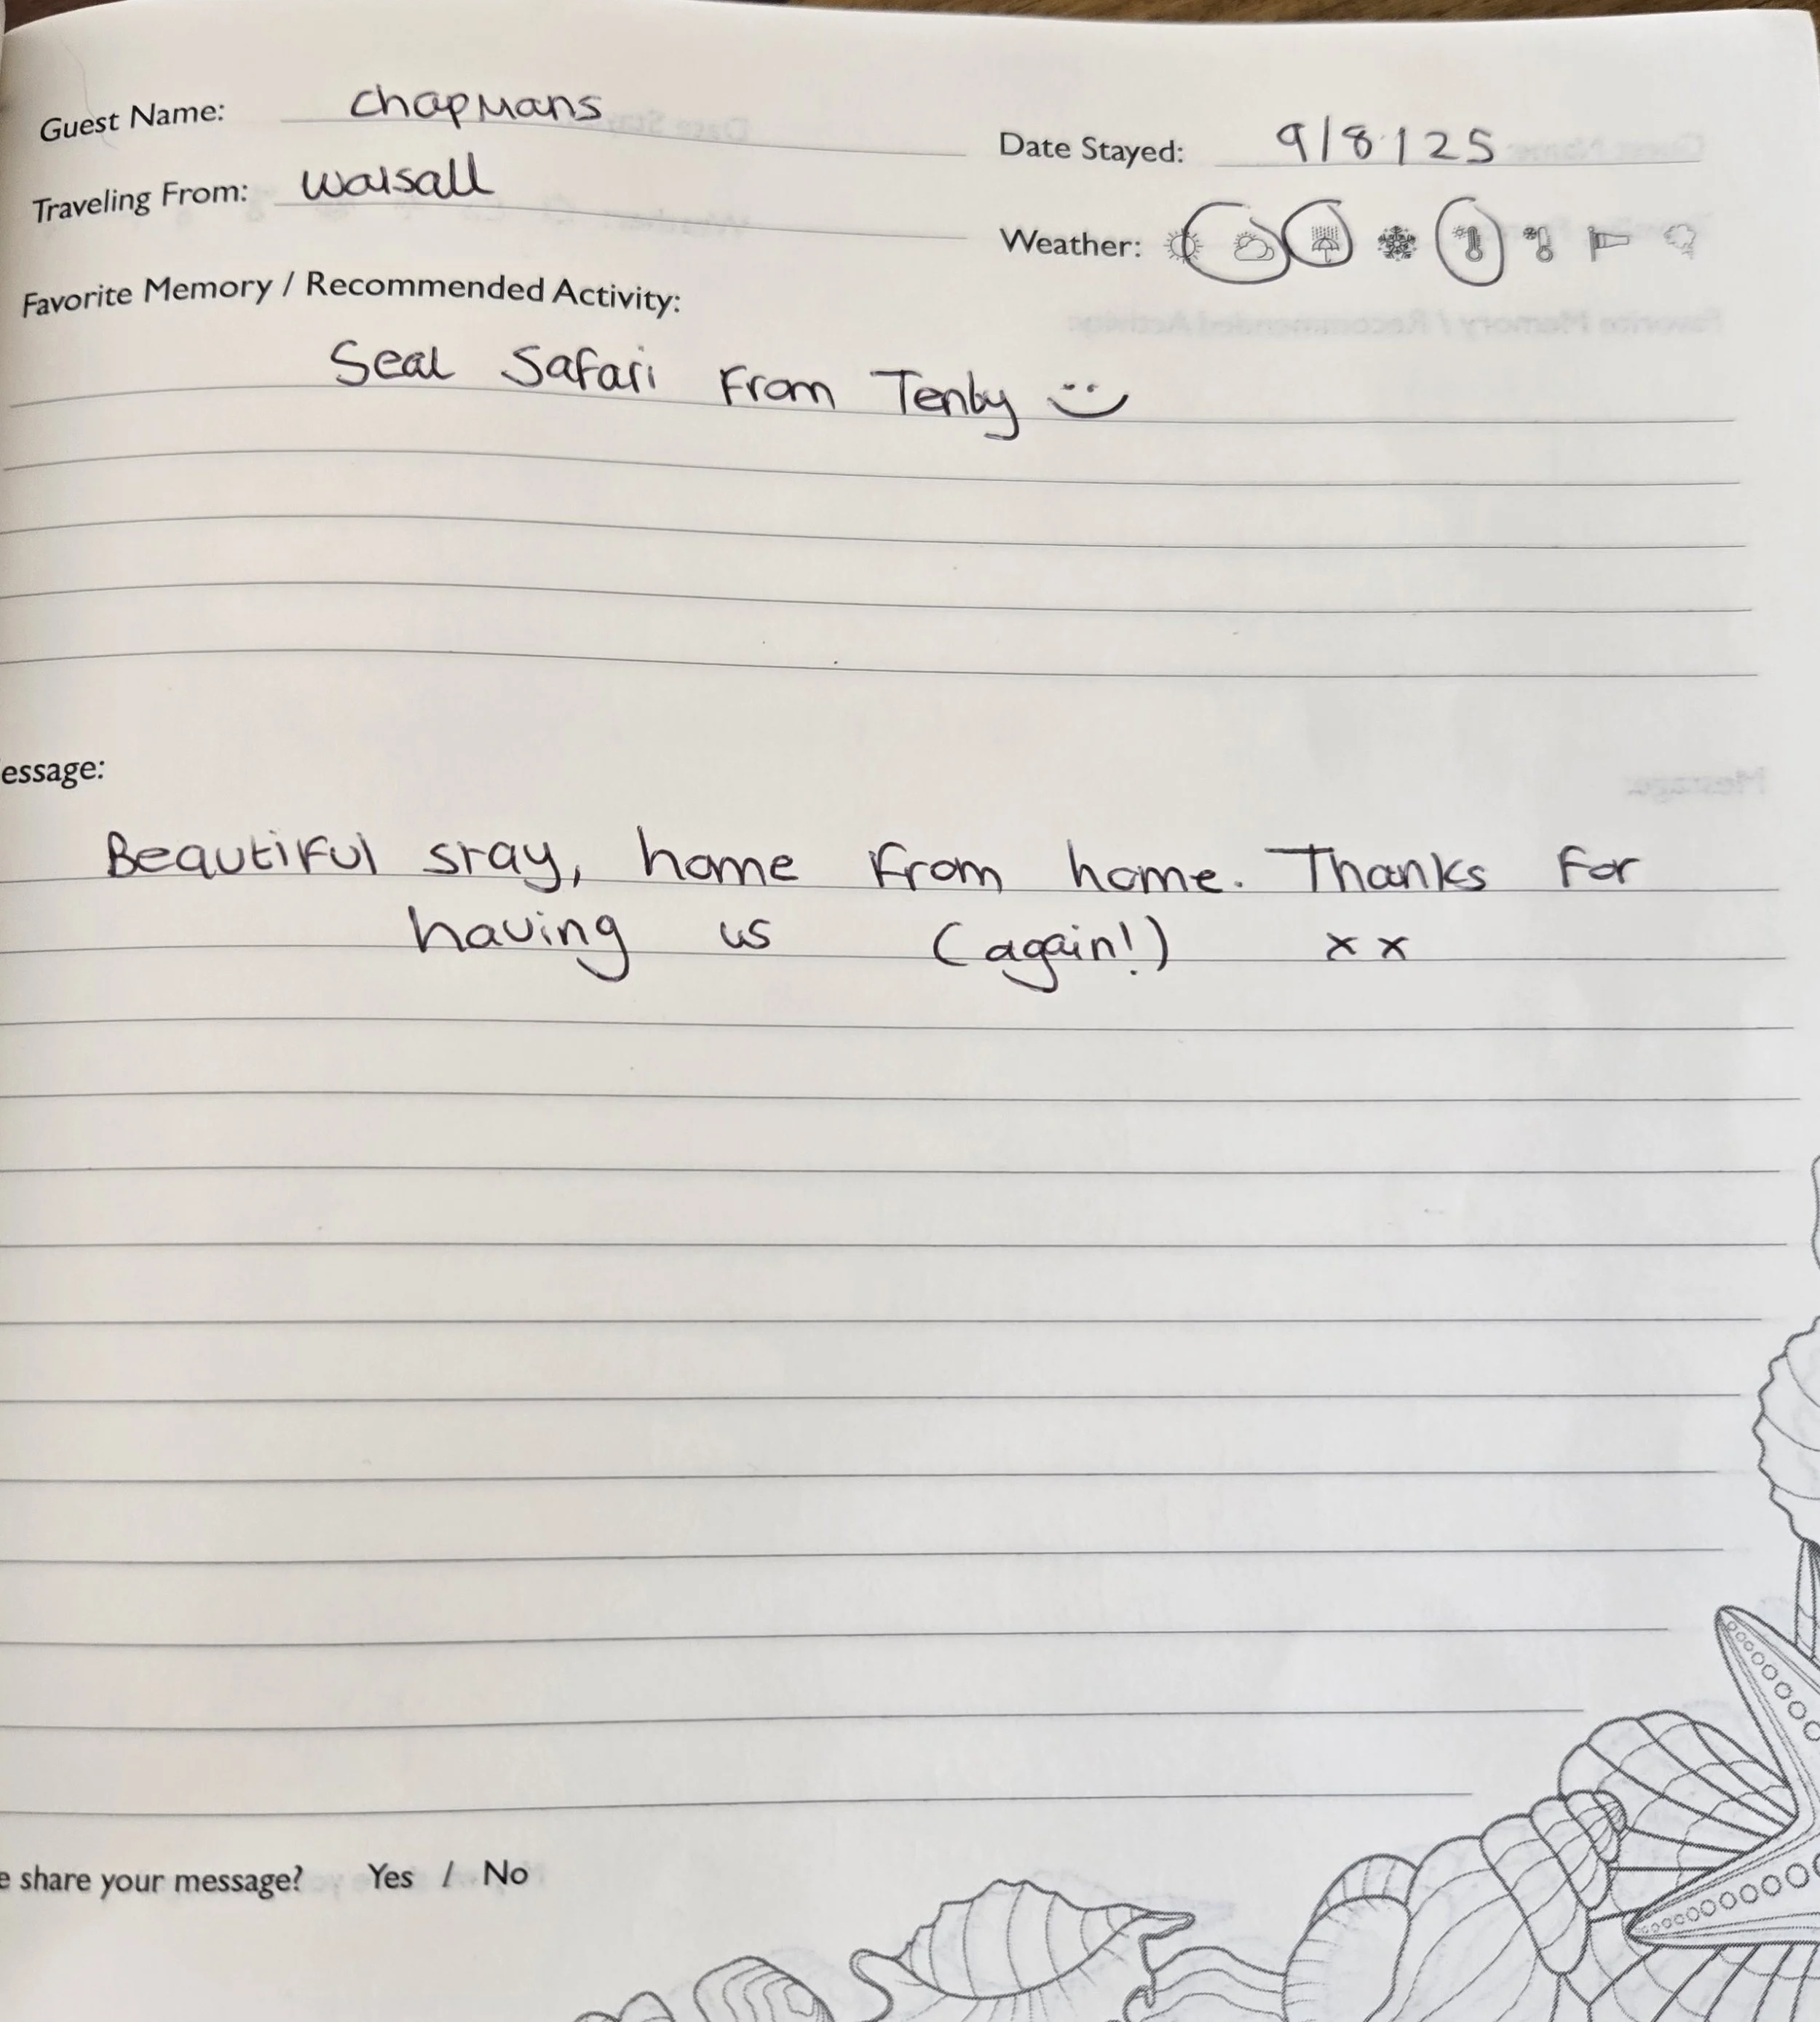 Guest Name: Chapmans
Date Stayed: 9/8/25
Traveling From: Walsall
Weather:
Favorite Memory / Recommended Activity:
Seal Safari From Tenby
essage:
Beautiful stay, home from home. Thanks for
having us (again!) xx
e share your message? Yes / No